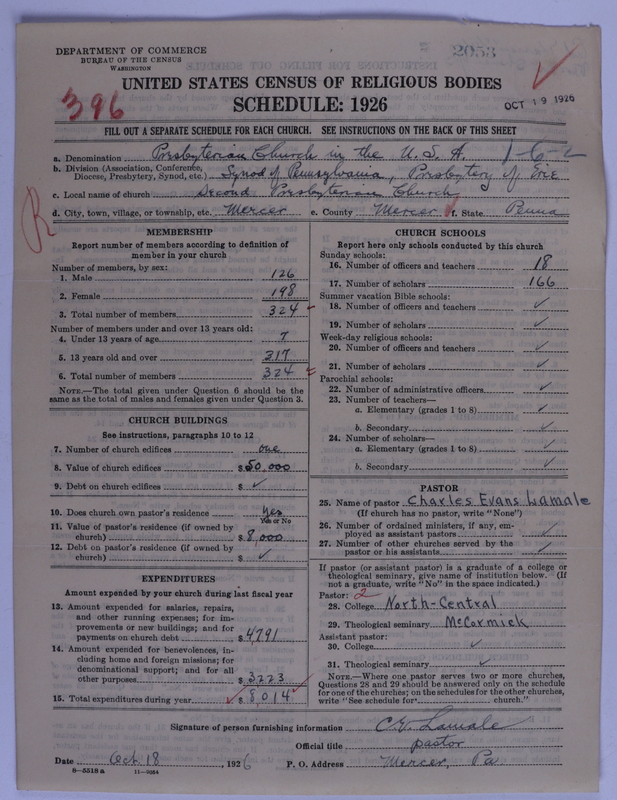 DEPARTMENT OF COMMERCE
BUREAU OF THE CENSUS
WASHINGTON
2053
UNITED STATES CENSUS OF RELIGIOUS BODIES
396
SCHEDULE: 1926
OCT 19 1926
FILL OUT A SEPARATE SCHEDULE FOR EACH CHURCH. SEE INSTRUCTIONS ON THE BACK OF THIS SHEET
a. Denomination Presbyterian Church in the U.S.A. 1-6-2
b. Division (Association, Conference, Diocese, Presbytery, Synod, etc.) Synod of Pennsylvania, Presbytery of Erie
c. Local name of church Second Presbyterian Church
d. City, town, village, or township, etc. Mercer e. County Mercer f. State Penna
R
MEMBERSHIP
Report number of members according to definition of
member in your church
Number of members, by sex:
1. Male 126
2. Female 198
3. Total number of members 324
Number of members under and over 13 years old:
4. Under 13 years of age 7
5. 13 years old and over 317
6. Total number of members 324
NOTE.—The total given under Question 6 should be
same as the total of males and females given under Question 3.
CHURCH BUILDINGS
See instructions, paragraphs 10 to 12
7. Number of church edifices one
8. Value of church edifices $50,000
9. Debt on church edifices $ ✓
10. Does church own pastor's residence Yes
Yes or No
11. Value of pastor's residence (if owned by
church) $8,000
12. Debt on pastor's residence (if owned by
church) $ ✓
EXPENDITURES
Amount expended by your church during last fiscal year
13. Amount expended for salaries, repairs,
and other running expenses; for im-
provements or new buildings; and for
payments on church debt $4791
14. Amount expended for benevolences, in-
cluding home and foreign missions; for
denominational support; and for all
other purposes $3223
15. Total expenditures during year $8014
CHURCH SCHOOLS
Report here only schools conducted by this church
Sunday schools:
16. Number of officers and teachers 18
17. Number of scholars 166
Summer vacation Bible schools:
18. Number of officers and teachers ✓
19. Number of scholars ✓
Week-day religious schools:
20. Number of officers and teachers ✓
21. Number of scholars ✓
Parochial schools:
22. Number of administrative officers ✓
23. Number of teachers—
a. Elementary (grades 1 to 8) ✓
b. Secondary ✓
24. Number of scholars—
a. Elementary (grades 1 to 8) ✓
b. Secondary ✓
PASTOR
25. Name of pastor Charles Evans Lamale
(If church has no pastor, write "None")
26. Number of ordained ministers, if any, em-
ployed as assistant pastors ✓
27. Number of other churches served by the
pastor or his assistants ✓
If pastor (or assistant pastor) is a graduate of a college or
theological seminary, give name of institution below. (If
not a graduate, write "No" in the space indicated.)
Pastor: 2
28. College North-Central
29. Theological seminary McCormick
Assistant pastor:
30. College ✓
31. Theological seminary ✓
NOTE.—Where one pastor serves two or more churches,
Questions 28 and 29 should be answered only on the schedule
for one of the churches; on the schedules for the other churches,
write "See schedule for church."
Signature of person furnishing information C E Lamale
Official title pastor
Date Oct. 18, 1926 P. O. Address Mercer, Pa
8—5518 a 11—9064